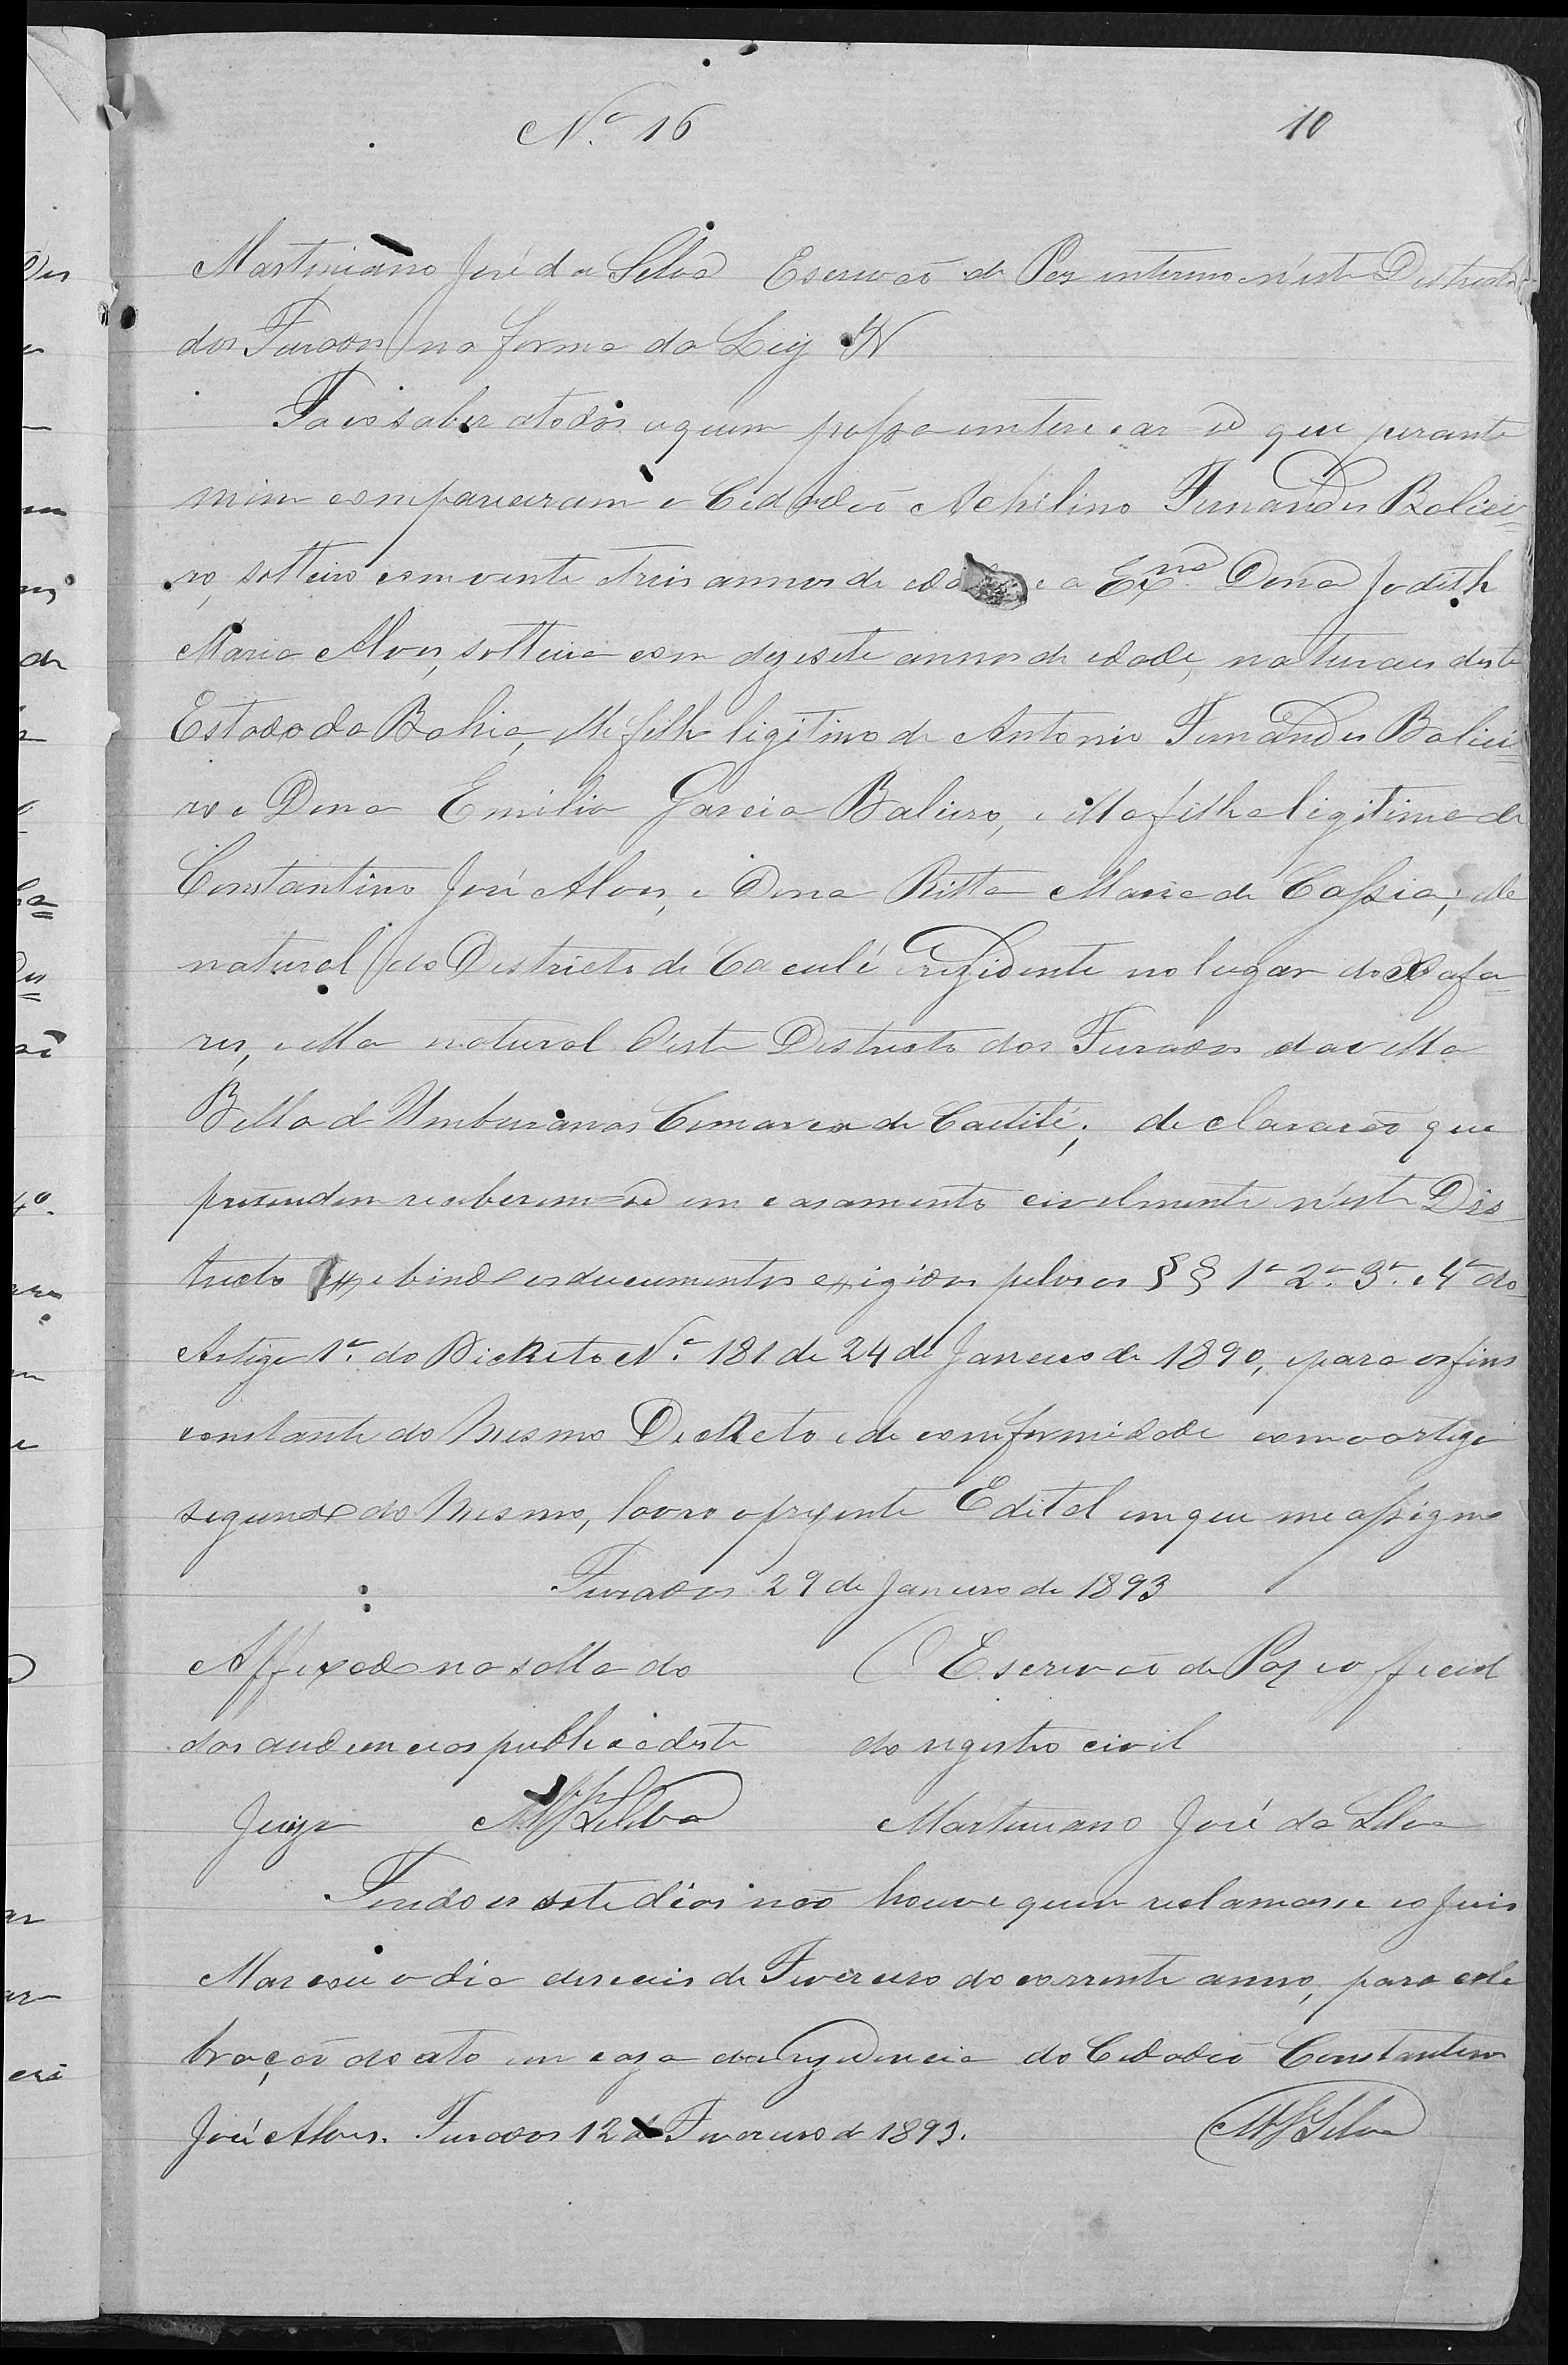 Nº 16 10
Martiniano José da Silva Escrivaõ de Paz interino n'este Districto
dos Furados na forma da Ley &
Faço saber a todos a quem possa interecar-se que perante
mim compareceram o Cidadaõ Achilino Fernandes Baliei=
ro, solteiro com vinte e treis annos de edade e a Exmª Dona Judith
Maria Alves, solteira com dezesete annos de edade, naturaes deste
Estado da Bahia, elle filho ligitimo de Antonio Fernandes Baliei=
ro e Dona Emilia Garcia Balieiro, e ella filha ligitima de
Constantino José Alves, e Dona Ritta Maria de Cassia; elle
natural do Districto de Caculé rezidente no lugar do
res, e ella natural d'este Districto dos Furados da villa
Bella d Umburanas Comarca de Caetité; declararaõ que
pretendem receberem-se em casamento civelmente n'este Dis
tricto exebindo os ducumentos exigidos pelos os §§ 1º 2º 3º e 4º do
Artigo 1º do Dicreto Nº 181 de 24 de Janeiro de 1890, e para os fins
constante do Mesmo Decreto e de comformidade com o artigo
segundo do Mesmo, lavro o prezente Edital em que me assigno
Furados 29 de Janeiro de 1893
Affixado na salla do O Escrivaõ de Paz e o fficial
das audiencias publica deste do registro civil
Juizo MJSilva Martiniano José da Silva
Findo os sete dias naõ houve quem reclamasse e o Juis
Marcou o dia deseceis de Fevereiro do corrente anno, para cele
braçaõ do ato em caza da rezidencia do Cidadaõ Constantino
José Alves. Furados 12 de Fevereiro d 1893. MJSilva